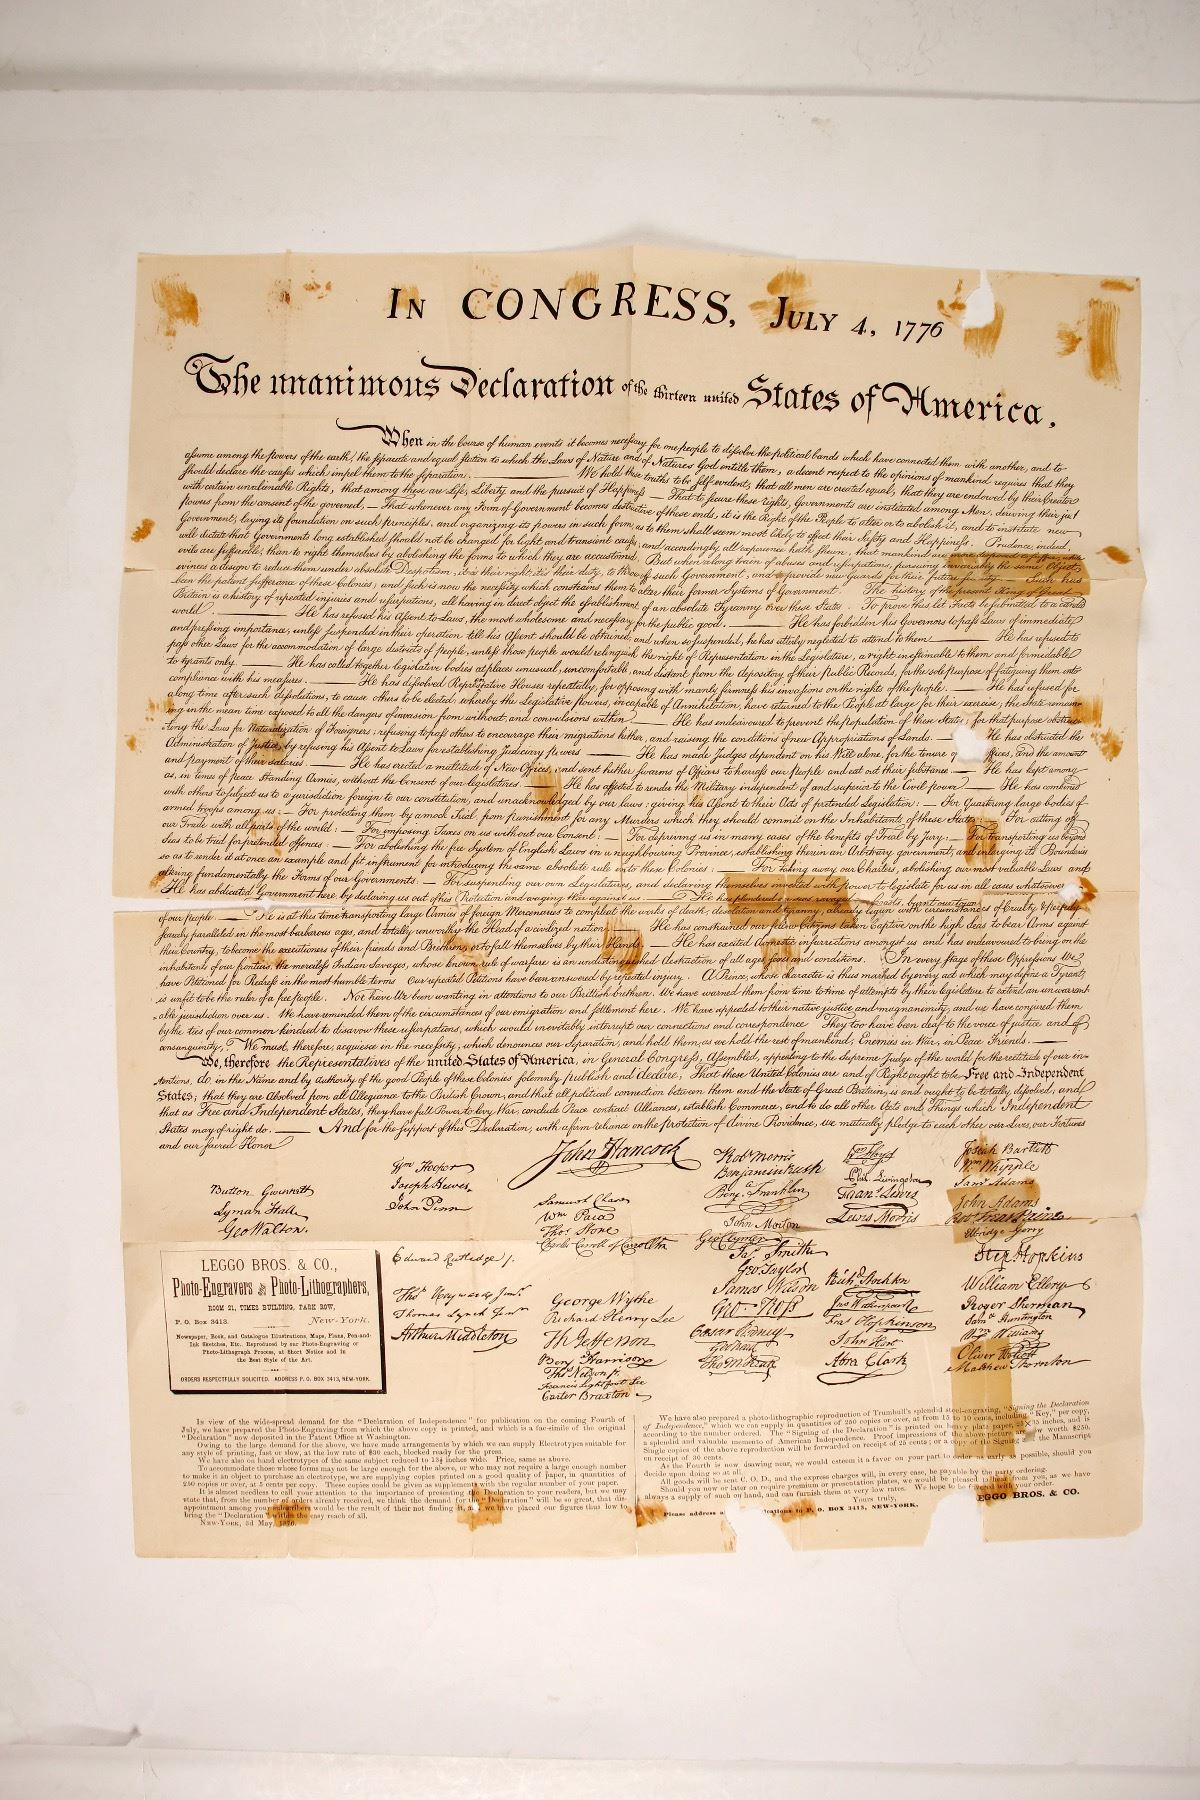 IN CONGRESS, JULY 4, 1776
The unanimous Declaration of the thirteen united States of America,
When in the Course of human events it becomes necessary for one people to dissolve the political bands which have connected them with another, and to
assume among the powers of the earth, the separate and equal station to which the Laws of Nature and of Nature's God entitle them, a decent respect to the opinions of mankind requires that they
should declare the causes which impel them to the separation. We hold these truths to be self-evident, that all men are created equal, that they are endowed by their Creator
with certain unalienable Rights, that among these are Life, Liberty and the pursuit of Happiness — That to secure these rights, Governments are instituted among Men, deriving their just
powers from the consent of the governed, — That whenever any Form of Government becomes destructive of these ends, it is the Right of the People to alter or to abolish it, and to institute new
Government, laying its foundation on such principles, and organizing its powers in such form, as to them shall seem most likely to effect their Safety and Happiness. Prudence, indeed,
will dictate that Governments long established should not be changed for light and transient causes; and accordingly all experience hath shewn, that mankind are more disposed to suffer, while
evils are sufferable, than to right themselves by abolishing the forms to which they are accustomed. But when a long train of abuses and usurpations, pursuing invariably the same Object,
evinces a design to reduce them under absolute Despotism, it is their right, it is their duty, to throw off such Government, and to provide new Guards for their future security — Such has
been the patient sufferance of these Colonies; and such is now the necessity which constrains them to alter their former Systems of Government. The history of the present King of Great
Britain is a history of repeated injuries and usurpations, all having in direct object the establishment of an absolute Tyranny over these States. To prove this let Facts be submitted to a candid
world. He has refused his Assent to Laws, the most wholesome and necessary for the public good. He has forbidden his Governors to pass Laws of immediate
and pressing importance, unless suspended in their operation till his Assent should be obtained; and when so suspended, he has utterly neglected to attend to them He has refused to
pass other Laws for the accommodation of large districts of people, unless those people would relinquish the right of Representation in the Legislature, a right inestimable to them and formidable
to tyrants only. He has called together legislative bodies at places unusual, uncomfortable, and distant from the depository of their Public Records, for the sole purpose of fatiguing them into
compliance with his measures. He has dissolved Representative Houses repeatedly, for opposing with manly firmness his invasions on the rights of the people. He has refused for
a long time after such dissolutions, to cause others to be elected; whereby the Legislative powers, incapable of Annihilation, have returned to the People at large for their exercise; the State remain-
ing in the mean time exposed to all the dangers of invasion from without, and convulsions within He has endeavoured to prevent the population of these States; for that purpose obstruc-
ting the Laws for Naturalization of Foreigners; refusing to pass others to encourage their migrations hither, and raising the conditions of new Appropriations of Lands. He has obstructed the
Administration of Justice, by refusing his Assent to Laws for establishing Judiciary powers He has made Judges dependent on his Will alone, for the tenure of offices, and the amount
and payment of their salaries. He has erected a multitude of New Offices, and sent hither swarms of Officers to harass our People and eat out their substance. He has kept among
us, in times of peace Standing Armies, without the Consent of our legislatures. He has affected to render the Military independent of and superior to the Civil power He has combined
with others to subject us to a jurisdiction foreign to our constitution, and unacknowledged by our laws; giving his Assent to their Acts of pretended Legislation: — For Quartering large bodies of
armed troops among us: — For protecting them by a mock Trial, from punishment for any Murders which they should commit on the Inhabitants of these States: — For cutting off
our Trade with all parts of the world: — For imposing Taxes on us without our Consent: — For depriving us in many cases of the benefits of Trial by Jury: — For transporting us beyond
Seas to be tried for pretended offences: — For abolishing the free System of English Laws in a neighbouring Province, establishing therein an Arbitrary government, and enlarging its Boundaries
so as to render it at once an example and fit instrument for introducing the same absolute rule into these Colonies: — For taking away our Charters, abolishing our most valuable Laws and
altering fundamentally the Forms of our Governments: — For suspending our own Legislatures, and declaring themselves invested with power to legislate for us in all cases whatsoever
He has abdicated Government here, by declaring us out of his Protection and waging War against us He has plundered seas, ravaged Coasts, burnt our town
of our people. He is at this time transporting large Armies of foreign Mercenaries to compleat the works of death, desolation and tyranny, already begun with circumstances of Cruelty & perfidy
scarcely paralleled in the most barbarous ages, and totally unworthy the Head of a civilized nation He has constrained our fellow Citizens taken Captive on the high Seas to bear Arms against
their Country, to become the executioners of their friends and Brethren, or to fall themselves by their Hands. He has excited domestic insurrections amongst us and has endeavoured to bring on the
inhabitants of our frontiers, the merciless Indian Savages, whose known rule of warfare, is an undistinguished destruction of all ages, sexes and conditions. In every stage of these Oppressions We
have Petitioned for Redress in the most humble terms Our repeated Petitions have been answered by repeated injury. A Prince, whose character is thus marked by every act which may define a Tyrant,
is unfit to be the ruler of a free people. Nor have We been wanting in attentions to our Brittish brethren. We have warned them from time to time of attempts by their legislature to extend an unwarrant-
able jurisdiction over us. We have reminded them of the circumstances of our emigration and settlement here. We have appealed to their native justice and magnanimity, and we have conjured them
by the ties of our common kindred to disavow these usurpations, which would inevitably interrupt our connections and correspondence They too have been deaf to the voice of justice and of
consanguinity. We must, therefore, acquiesce in the necessity, which denounces our Separation, and hold them, as we hold the rest of mankind, Enemies in War, in Peace Friends. —
We, therefore the Representatives of the united States of America, in General Congress, Assembled, appealing to the Supreme Judge of the world for the rectitude of our in-
tentions, do, in the Name and by Authority of the good People of these Colonies solemnly publish and declare, That these United Colonies are and of Right ought to be Free and Independent
States; that they are Absolved from all Allegiance to the British Crown, and that all political connection between them and the State of Great Britain, is and ought to be totally dissolved; and
that as Free and Independent States, they have full Power to levy War, conclude Peace contract Alliances, establish Commerce, and to do all other Acts and Things which Independent
States may of right do. And for the support of this Declaration, with a firm reliance on the Protection of divine Providence, we mutually pledge to each other our Lives, our Fortunes
and our sacred Honor
John Hancock
Button Gwinnett
Lyman Hall
Geo Walton.
Wm Hooper
Joseph Hewes,
John Penn
Edward Rutledge /.
Thos Heyward Junr.
Thomas Lynch Junr.
Arthur Middleton
Samuel Chase
Wm Paca
Thos Stone
Charles Carroll of Carrollton
George Wythe
Richard Henry Lee
Th Jefferson
Benj Harrison
Thos Nelson jr.
Francis Lightfoot Lee
Carter Braxton
Robt Morris
Benjamin Rush
Benja Franklin
John Morton
Geo Clymer
Jas Smith
Geo Taylor
James Wilson
Geo Ross
Caesar Rodney
Geo Read
Tho M:Kean
Wm Floyd
Phil Livingston
Frans Lewis
Lewis Morris
Richd Stockton
Jno Witherspoon
Fras Hopkinson
John Hart
Abra Clark
Josiah Bartlett
Wm Whipple
Saml Adams
John Adams
Robt Treat Paine
Elbridge Gerry
Step Hopkins
William Ellery
Roger Sherman
Saml Huntington
Wm Williams
Oliver Wolcott
Matthew Thornton
LEGGO BROS. & CO.,
Photo-Engravers and Photo-Lithographers,
ROOM 21, TIMES BUILDING, PARK ROW,
P. O. Box 3413. New-York.
Newspaper, Book, and Catalogue Illustrations, Maps, Plans, Pen-and-
Ink Sketches, Etc. Reproduced by our Photo-Engraving or
Photo-Lithograph Process, at Short Notice and in
the Best Style of the Art.
ORDERS RESPECTFULLY SOLICITED. ADDRESS P. O. BOX 3413, NEW-YORK.
In view of the wide-spread demand for the "Declaration of Independence" for publication on the coming Fourth of
July, we have prepared the Photo-Engraving from which the above copy is printed, and which is a fac-simile of the original
"Declaration" now deposited in the Patent Office at Washington.
Owing to the large demand for the above, we have made arrangements by which we can supply Electrotypes suitable for
any style of printing, fast or slow, at the low rate of $30 each, blocked ready for the press.
We have also on hand electrotypes of the same subject reduced to 13½ inches wide. Price, same as above.
To accommodate those whose forms may not be large enough for the above, or who may not require a large enough number
to make it an object to purchase an electrotype, we are supplying copies printed on a good quality of paper, in quantities of
250 copies or over, at 5 cents per copy. These copies could be given as supplements with the regular number of your journal.
It is almost needless to call your attention to the importance of presenting the Declaration to your readers, but we may
state that, from the number of orders already received, we think the demand for the "Declaration" will be so great, that dis-
appointment among your readers would be the result of their not finding it, as we have placed our figures thus low to
bring the "Declaration" within the easy reach of all.
NEW-YORK, 3d May, 1876.
We have also prepared a photo-lithographic reproduction of Trumbull's splendid steel-engraving, "Signing the Declaration
of Independence," which we can supply in quantities of 250 copies or over, at from 15 to 10 cents, including "Key," per copy,
according to the number ordered. The "Signing of the Declaration" is printed on heavy plate paper, inches, and is
a splendid and valuable memento of American Independence. Proof impressions of the above picture are now worth $250.
Single copies of the above reproduction will be forwarded on receipt of 25 cents; or a copy of the "Signing the Manuscript
on receipt of 30 cents.
As the Fourth is now drawing near, we would esteem it a favor on your part to order as early as possible, should you
decide upon doing so at all.
All goods will be sent C. O. D., and the express charges will, in every case, be payable by the party ordering.
Should you now or later on require premium or presentation plates, we would be pleased to hear from you, as we have
always a supply of such on hand, and can furnish them at very low rates. We hope to be favored with your order.
Yours truly,
LEGGO BROS. & CO.
Please address P. O. BOX 3413, NEW-YORK.